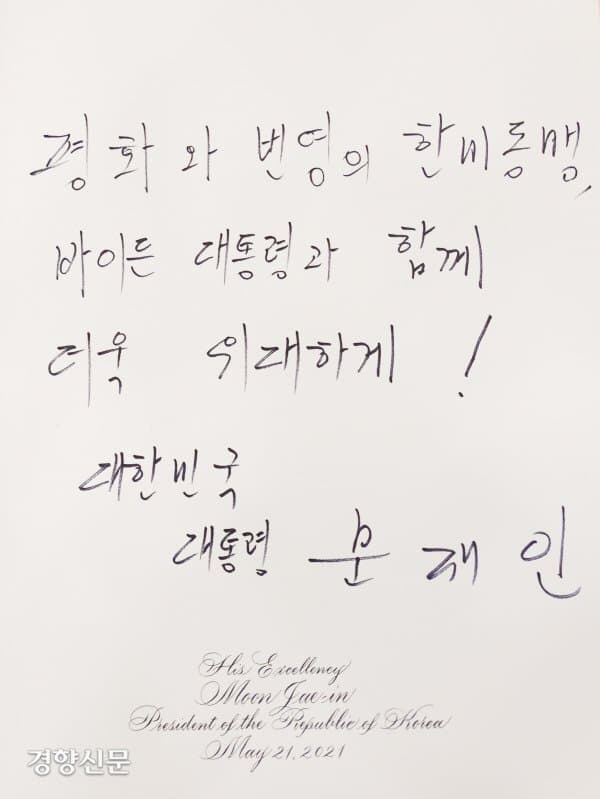 평화와 번영의 한미동맹,
바이든 대통령과 함께
더욱 위대하게!
대한민국
대통령 문재인
His Excellency
Moon Jae-in
President of the Republic of Korea
May 21, 2021
경향신문